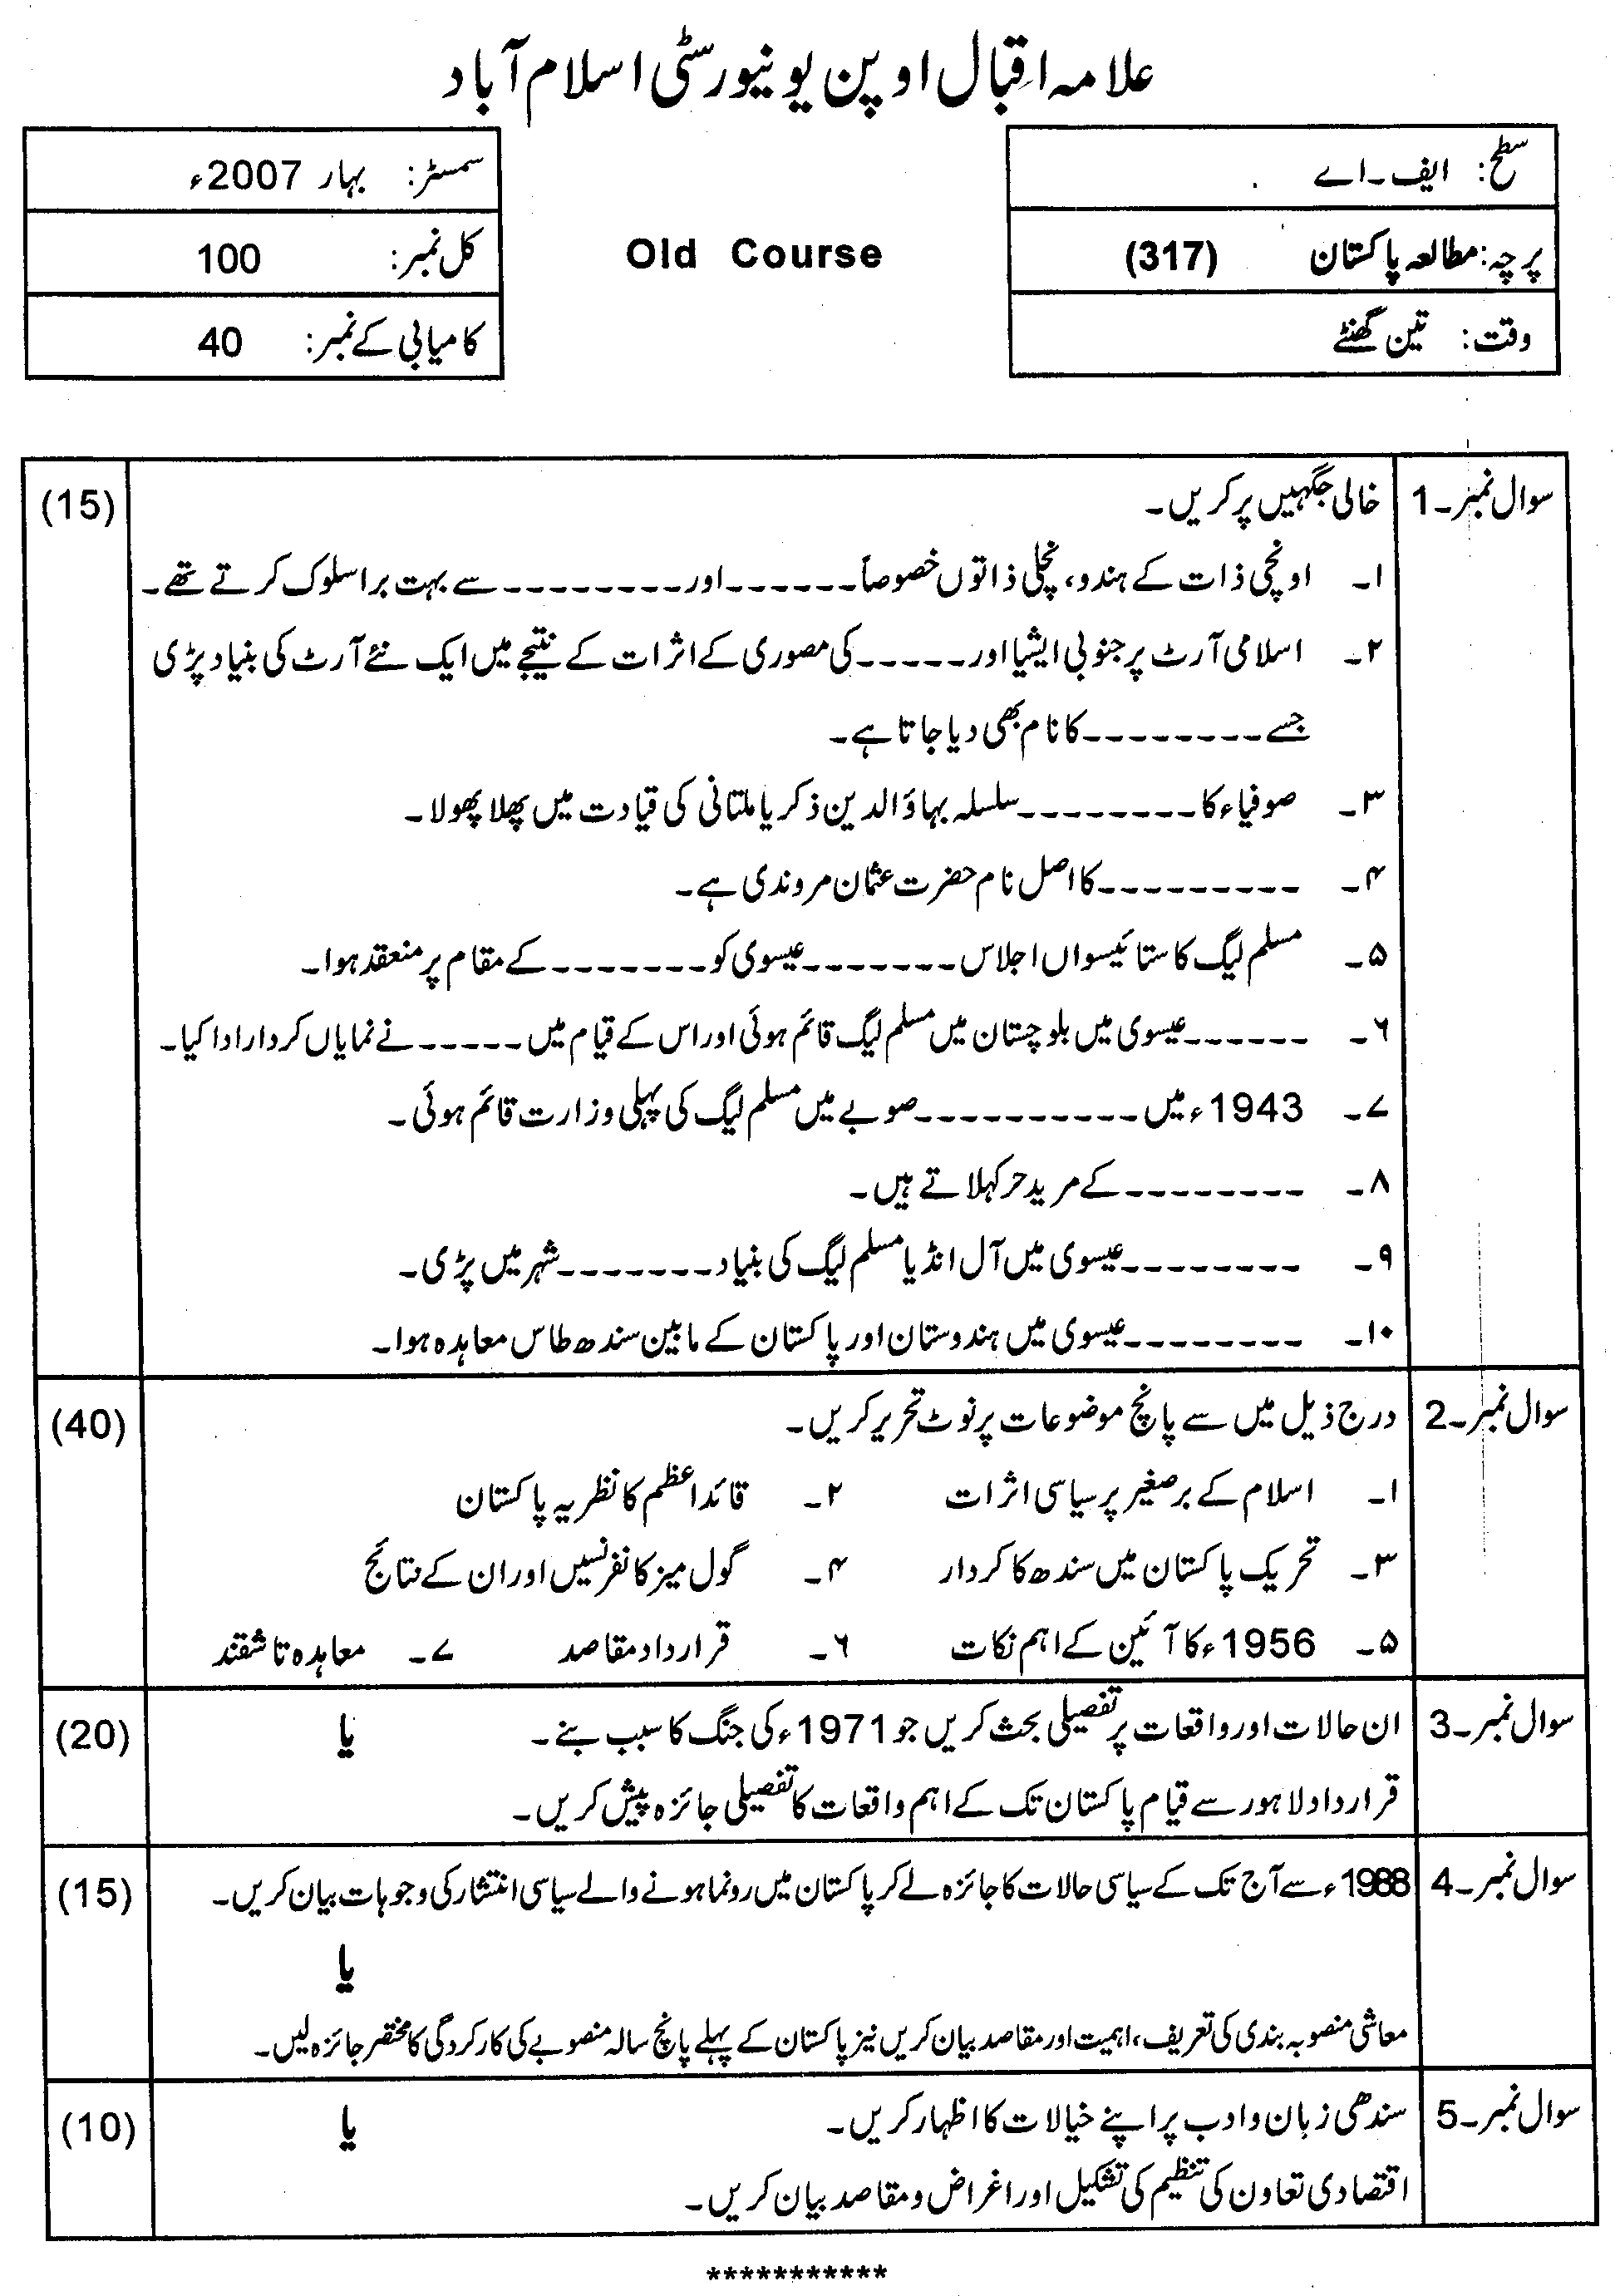 علامہ اقبال اوپن یونیورسٹی اسلام آباد
سطح: ایف۔اے
سمسٹر: بہار 2007ء
پرچہ: مطالعہ پاکستان (317)
Old Course
کل نمبر: 100
وقت: تین گھنٹے
کامیابی کے نمبر: 40
سوال نمبر۔1 خالی جگہیں پر کریں۔ (15)
۱۔ اونچی ذات کے ہندو، نچلی ذاتوں خصوصاً------اور---------سے بہت برا سلوک کرتے تھے۔
۲۔ اسلامی آرٹ پر جنوبی ایشیا اور-----کی مصوری کے اثرات کے نتیجے میں ایک نئے آرٹ کی بنیاد پڑی
جسے---------کا نام بھی دیا جاتا ہے۔
۳۔ صوفیاء کا---------سلسلہ بہاؤالدین ذکریا ملتانی کی قیادت میں پھلا پھولا۔
۴۔ ----------کا اصل نام حضرت عثمان مروندی ہے۔
۵۔ مسلم لیگ کا ستائیسواں اجلاس-------عیسوی کو--------کے مقام پر منعقد ہوا۔
۶۔ ------عیسوی میں بلوچستان میں مسلم لیگ قائم ہوئی اور اس کے قیام میں-----نے نمایاں کردار ادا کیا۔
۷۔ 1943ء میں-----------صوبے میں مسلم لیگ کی پہلی وزارت قائم ہوئی۔
۸۔ ---------کے مرید حر کہلاتے ہیں۔
۹۔ ---------عیسوی میں آل انڈیا مسلم لیگ کی بنیاد-------شہر میں پڑی۔
۱۰۔ ---------عیسوی میں ہندوستان اور پاکستان کے مابین سندھ طاس معاہدہ ہوا۔
سوال نمبر۔2 درج ذیل میں سے پانچ موضوعات پر نوٹ تحریر کریں۔ (40)
۱۔ اسلام کے برصغیر پر سیاسی اثرات ۲۔ قائداعظم کا نظریہ پاکستان
۳۔ تحریک پاکستان میں سندھ کا کردار ۴۔ گول میز کانفرنسیں اور ان کے نتائج
۵۔ 1956ء کا آئین کے اہم نکات ۶۔ قرارداد مقاصد ۷۔ معاہدہ تاشقند
سوال نمبر۔3 ان حالات اور واقعات پر تفصیلی بحث کریں جو 1971ء کی جنگ کا سبب بنے۔ یا (20)
قرارداد لاہور سے قیام پاکستان تک کے اہم واقعات کا تفصیلی جائزہ پیش کریں۔
سوال نمبر۔4 1988ء سے آج تک کے سیاسی حالات کا جائزہ لے کر پاکستان میں رونما ہونے والے سیاسی انتشار کی وجوہات بیان کریں۔ (15)
یا
معاشی منصوبہ بندی کی تعریف، اہمیت اور مقاصد بیان کریں نیز پاکستان کے پہلے پانچ سالہ منصوبے کی کارکردگی کا مختصر جائزہ لیں۔
سوال نمبر۔5 سندھی زبان و ادب پر اپنے خیالات کا اظہار کریں۔ یا (10)
اقتصادی تعاون کی تنظیم کی تشکیل اور اغراض و مقاصد بیان کریں۔
***********